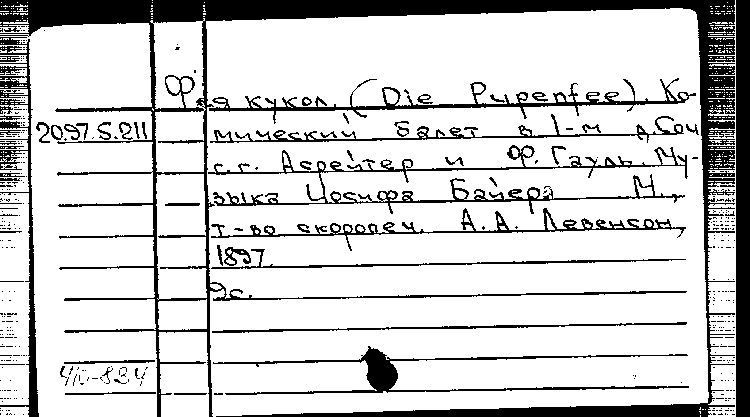 Фея кукол. (Die Pupenfee). Ко-
20.97.5.211 мический балет в 1-м д. Соч.
с.г. Асрейтер и Ф. Гауль. Му-
зыка Иосифа Байера М.,
т-во скоропеч. А.А. Левенсон,
1897.
9с.